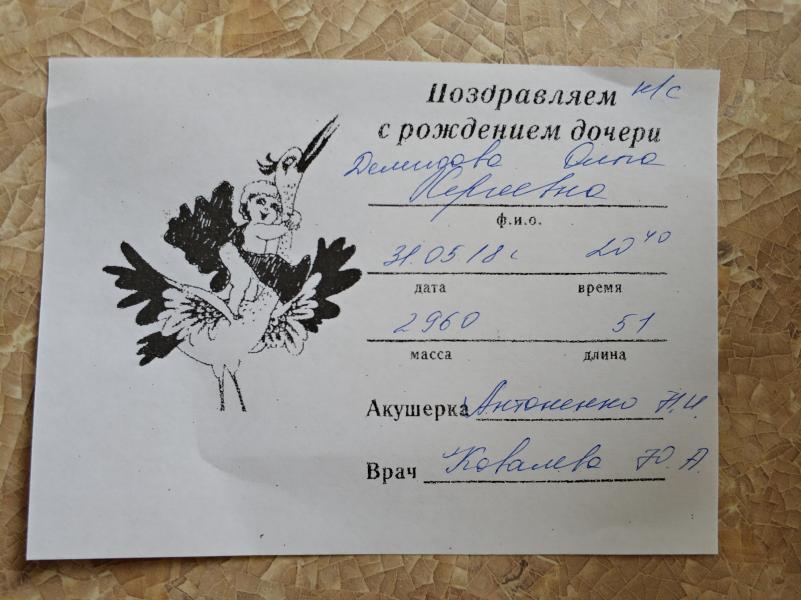 Поздравляем к/с
с рождением дочери
Демидова Ольга
Сергеевна
ф.и.о.
31.05 18г 20 40
дата время
2960 51
масса длина
Акушерка Антоненко Н.И.
Врач Ковалева Ю.А.